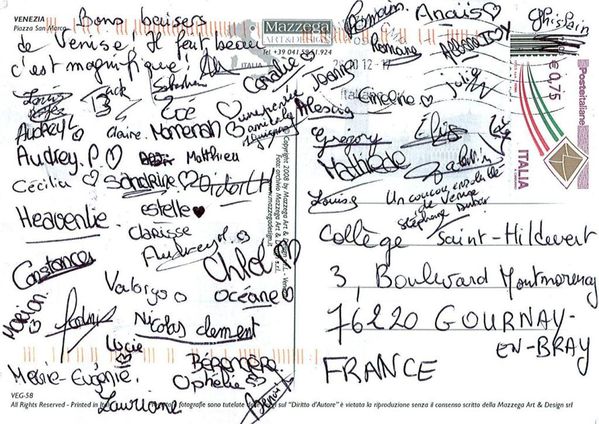 VENEZIA
Piazza San Marco
Bons baisers
de Venise, il fait beau
c'est magnifique!
Mazzega
ART & DESIGN
Tel +39 041 5951924
ITALIA
Romain
Anaïs
Ghislain
Romane
Coralie
Joana
Julie
Jack
Sébastien
Zoé
Alessia
Emeline
Audrey
Claire
Nomenah
Grégory
Elis
Audrey. P.
Matthieu
Mathilde
Cécilia
Sandrine
Didot H
Louise
Un coucou ensoleillé
de Venise
Stéphane
Heavenlie
estelle
Clarisse
Audrey
Constance
Chloé
Océane
Marion
Valorgo
Nicolas clement
Lucie
Marie-Eugénie
Bérengère
Ophélie
Benoit
Lauriane
Collège Saint-Hildevert
3, Boulevard Montmorency
76220 GOURNAY-
EN-BRAY
FRANCE
Posteitaliane
€ 0,75
ITALIA
Copyright 2008 by Mazzega Art & Design s.r.l. - Venezia
Foto archivio Mazzega Art & Design s.r.l.
www.mazzegadesign.it
VEG-58
All Rights Reserved - Printed in Italy
fotografie sono tutelate dalla legge sul "Diritto d'Autore" è vietata la riproduzione senza il consenso scritto della Mazzega Art & Design srl